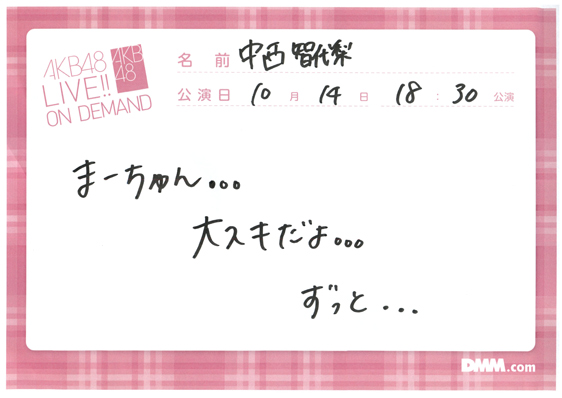 AKB48
LIVE!!
ON DEMAND
AKB
48
名前 中西智代梨
公演日 10月14日 18:30公演
まーちゅん...
大スキだよ...
ずっと...
DMM.com